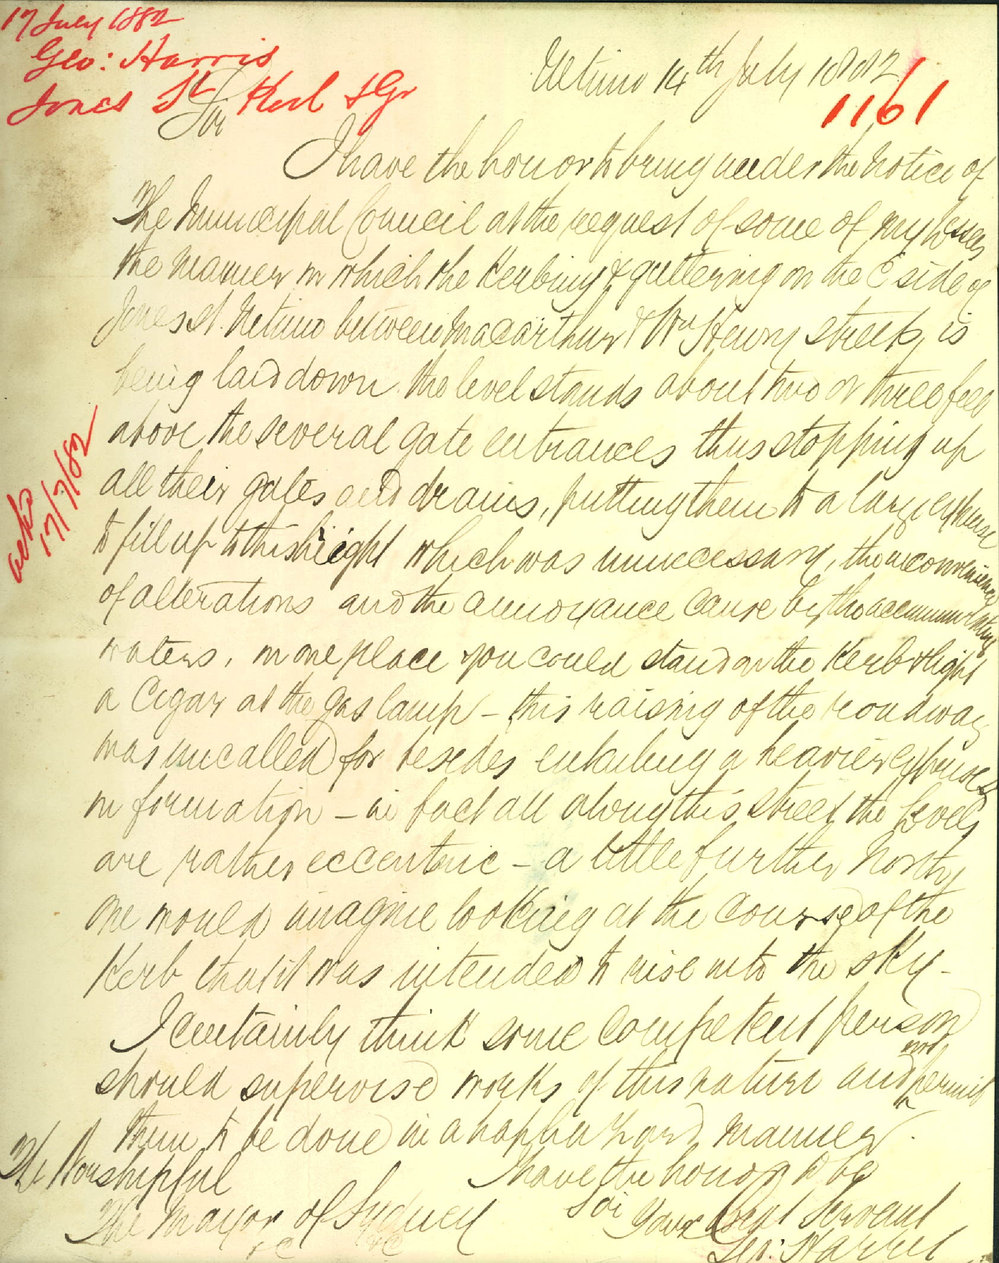 17 July 1882
Geo: Harris
Jones St Kerb & Gr
1161
Ultimo 14th July 1882
Sir
I have the honor to bring under the notice of
The Municipal Council at the request of some of my Lessees
the manner in which the Kerbing & guttering on the E side of
Jones St. Ultimo between Macarthur & Wm Henry streets, is
being laid down. the level stands about two or three feet
above the several gate entrances thus stopping up
all their gates and drains, putting them to a large expense
to fill up to this height which was unnecessary, the inconvenience
of alterations and the annoyance cause by the accumulating
waters, in one place you could stand on the Kerb & light
a Cigar at the gas lamp - this raising of the roadway
was uncalled for besides entailing a heavier expense
in formation - in fact all along this street the levels
are rather eccentric - a little further North,
one would imagine looking at the course of the
Kerb that it was intended to rise into the sky -
I certainly think some competent person
should supervise works of this nature and not permit
them to be done in a haphazard manner.
I have the honor to be
Sir
Your Obdt Servant
Geo: Harris
The Worshipful
The Mayor of Sydney
17/7/82